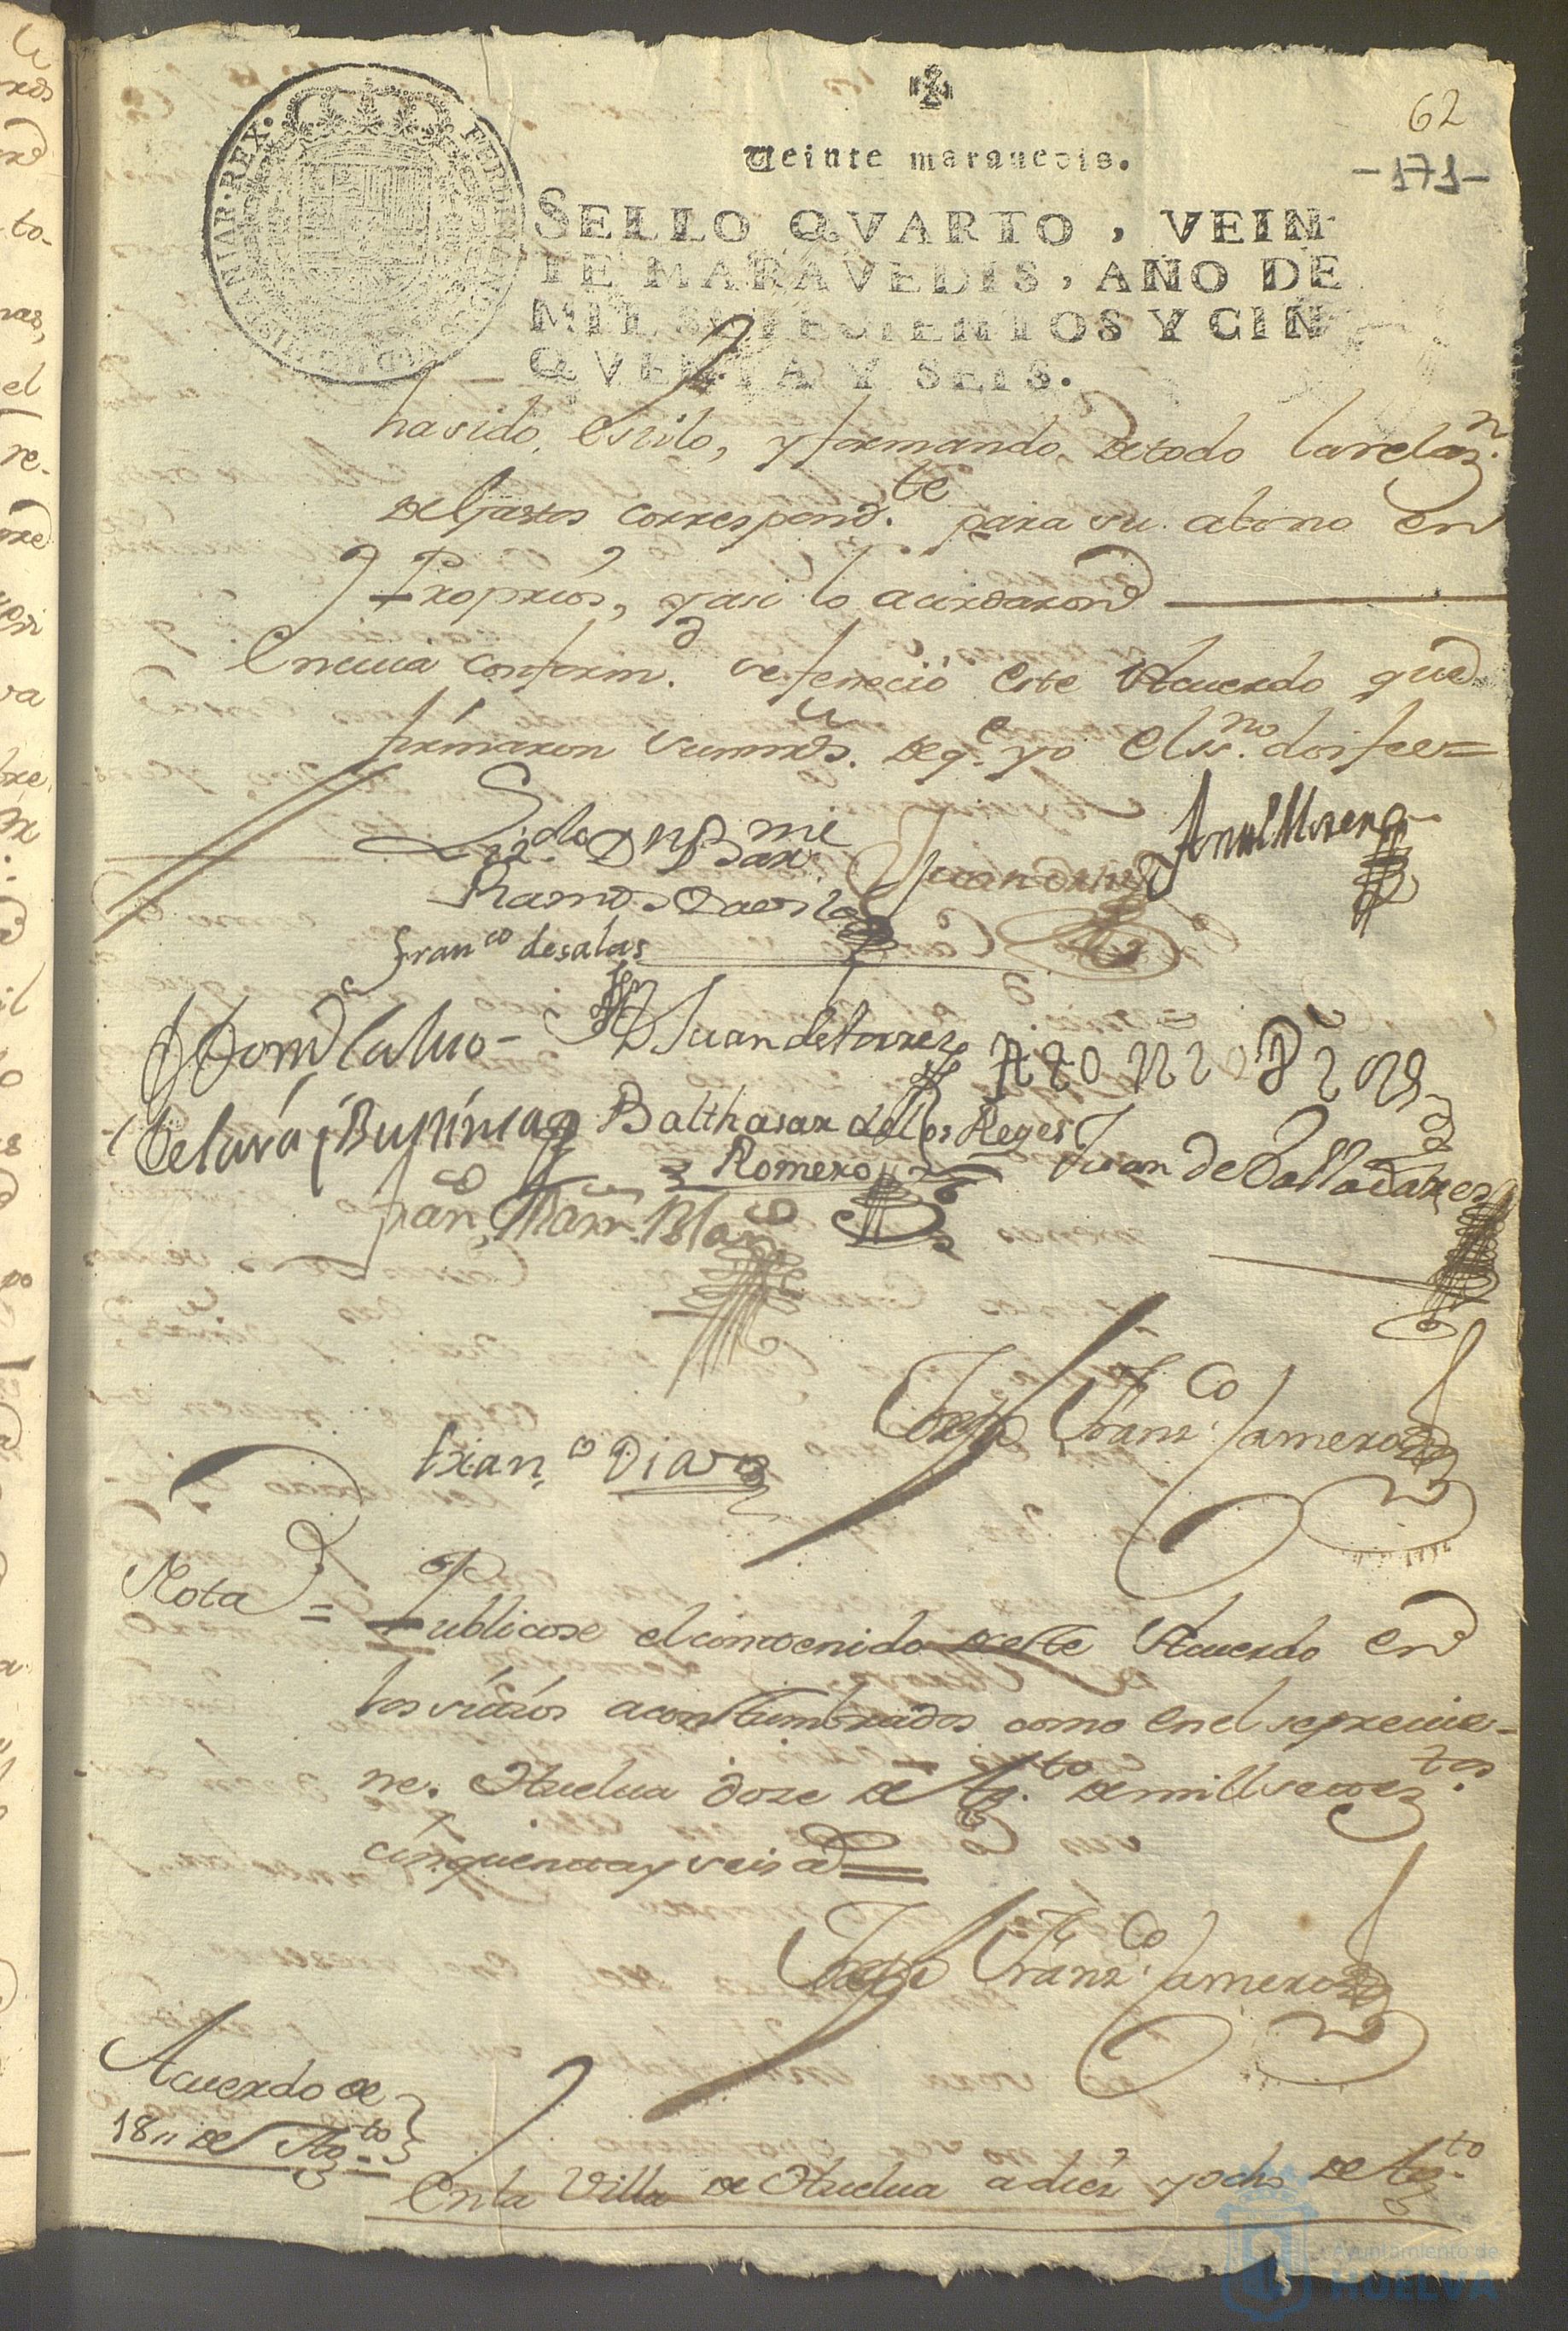 62
Veinte marauedis.
-171-
SELLO QVARTO, VEIN
TE MARAVEDIS, AÑO DE
MIL SETECIENTOS Y CIN
QVENTA Y SEIS.
HISPANIAR·REX·
havido, estilo, y formando de todo la relaz.n
de Gastos correspond.te para su abono en
Proprios, y asi lo acordaron
En cuia conform.d se feneció este Acuerdo que
firmaron sumrds. de q.e yo el ss.no doi fee=
Liz.do Dn
Ramos Davila
Juan
Anl Moreno
Fran.co de salas
Juan de torres
Alonso Dias
Balthasar de los Reyes
Romero
Juan de Valladares
Fran.co Marn. Blanco
Joseph Franz.co Jamero
Fran.co Diaz
Nota = Publicose el contenido de este Acuerdo en
los sitios acostumbrados como en el se previe-
ne. Huelua doze de Ag.to de mill setez.tos
cinquenta y seis a.s
Joseph Franz.co Jamero
Acuerdo de
18,, de Ag.to
En la Villa de Huelua a diez y ocho de Ag.to
Ayuntamiento de
HUELVA